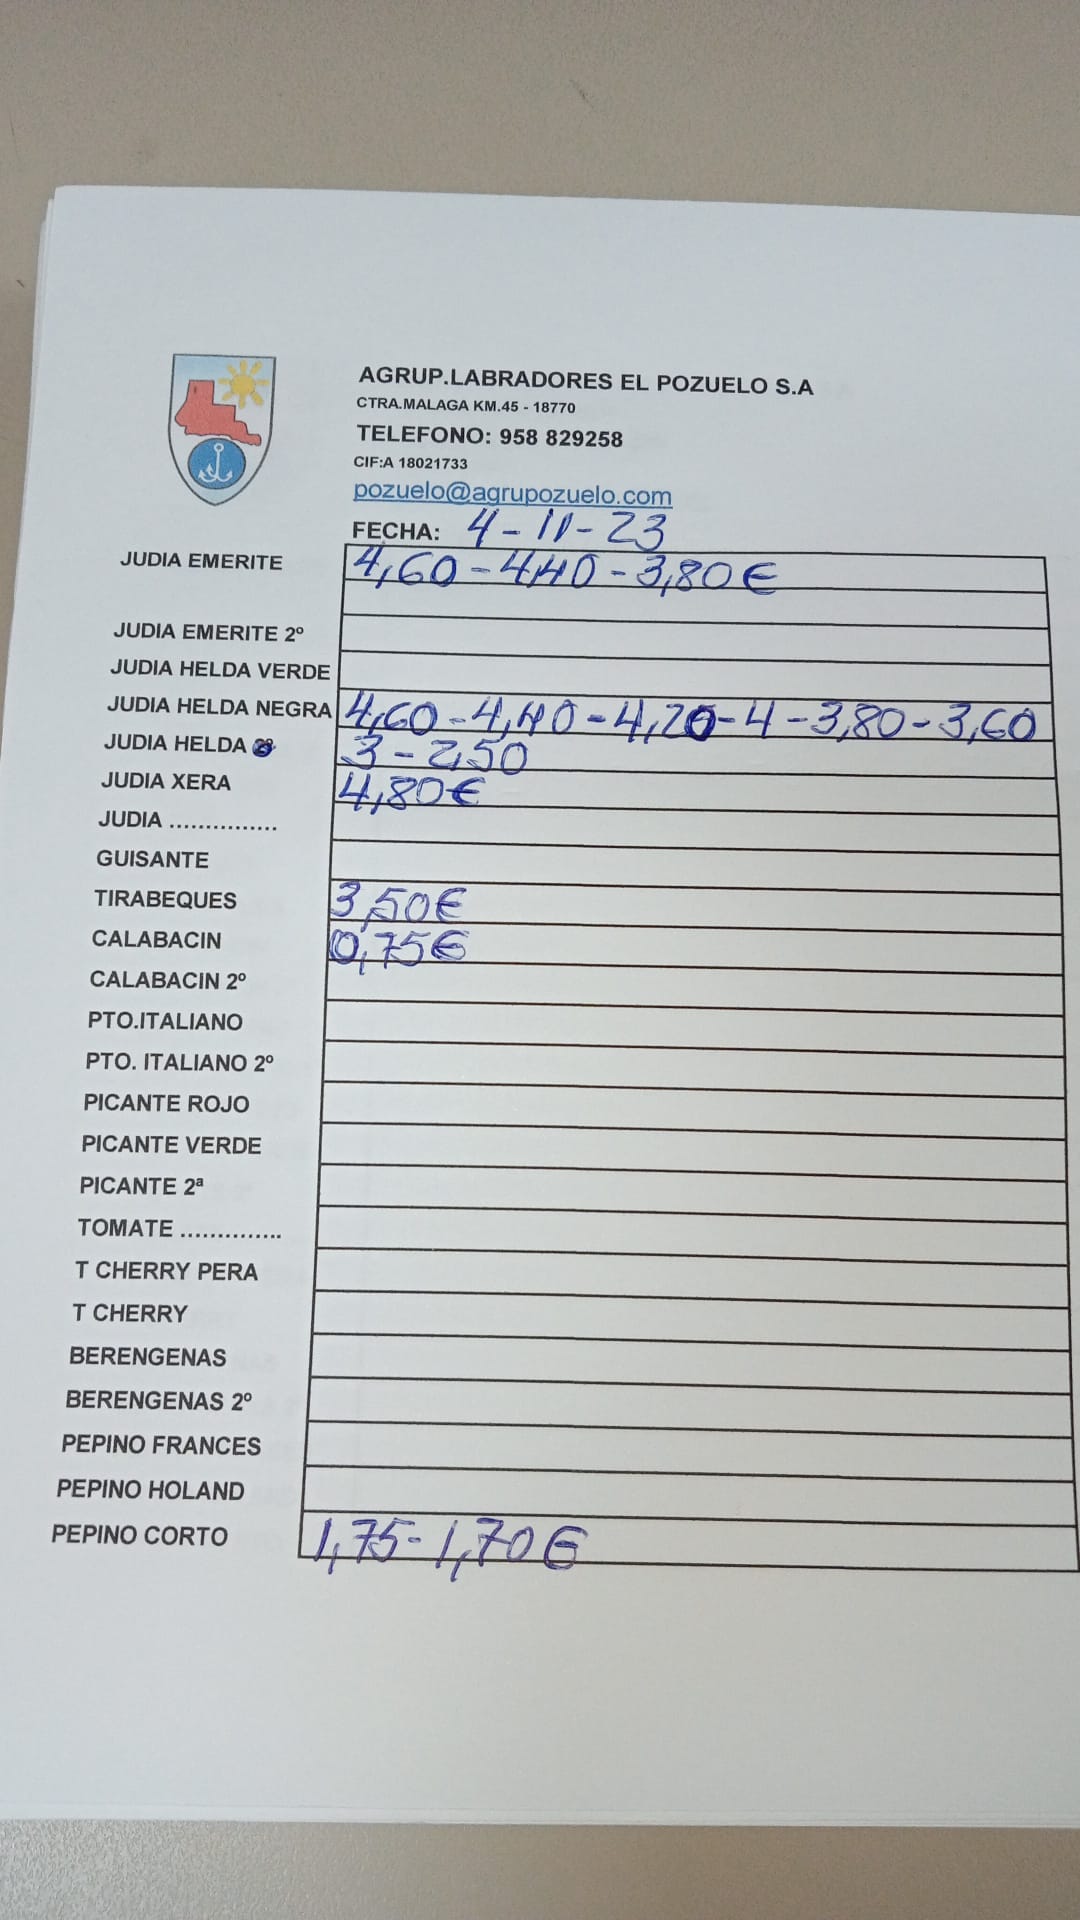 AGRUP.LABRADORES EL POZUELO S.A
CTRA.MALAGA KM.45 - 18770
TELEFONO: 958 829258
CIF:A 18021733
pozuelo@agrupozuelo.com
FECHA: 4-11-23
JUDIA EMERITE 4,60-4,40-3,80€
JUDIA EMERITE 2º
JUDIA HELDA VERDE
JUDIA HELDA NEGRA 4,60-4,40-4,20-4-3,80-3,60
JUDIA HELDA 3-2,50
JUDIA XERA 4,80€
JUDIA ...............
GUISANTE
TIRABEQUES 3,50€
CALABACIN 0,75€
CALABACIN 2º
PTO.ITALIANO
PTO. ITALIANO 2º
PICANTE ROJO
PICANTE VERDE
PICANTE 2ª
TOMATE ..............
T CHERRY PERA
T CHERRY
BERENGENAS
BERENGENAS 2º
PEPINO FRANCES
PEPINO HOLAND
PEPINO CORTO 1,75-1,70€